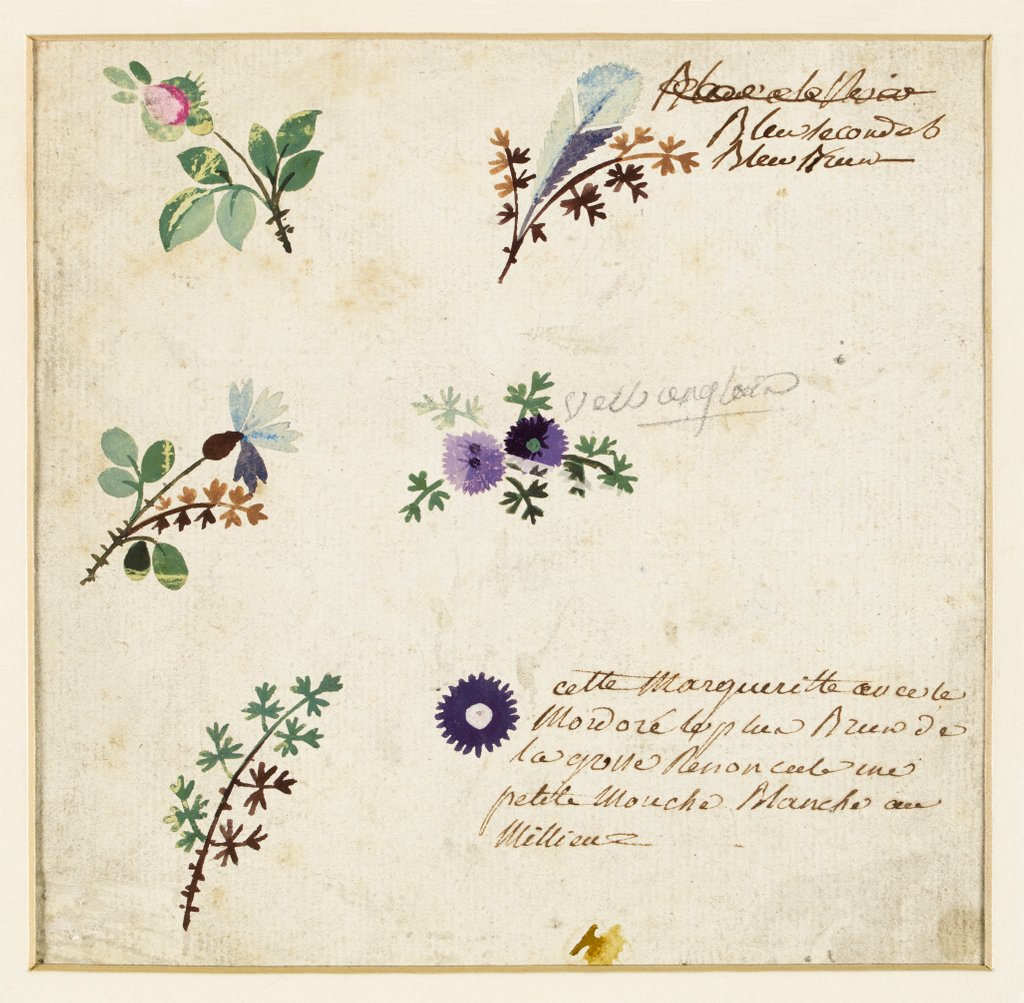 Bleu second et
Bleu Brun
Vert anglais
cette Margueritte avec le
Mordoré le plus Brun de
la grosse Renoncule une
petite Mouche Blanche au
Millieu